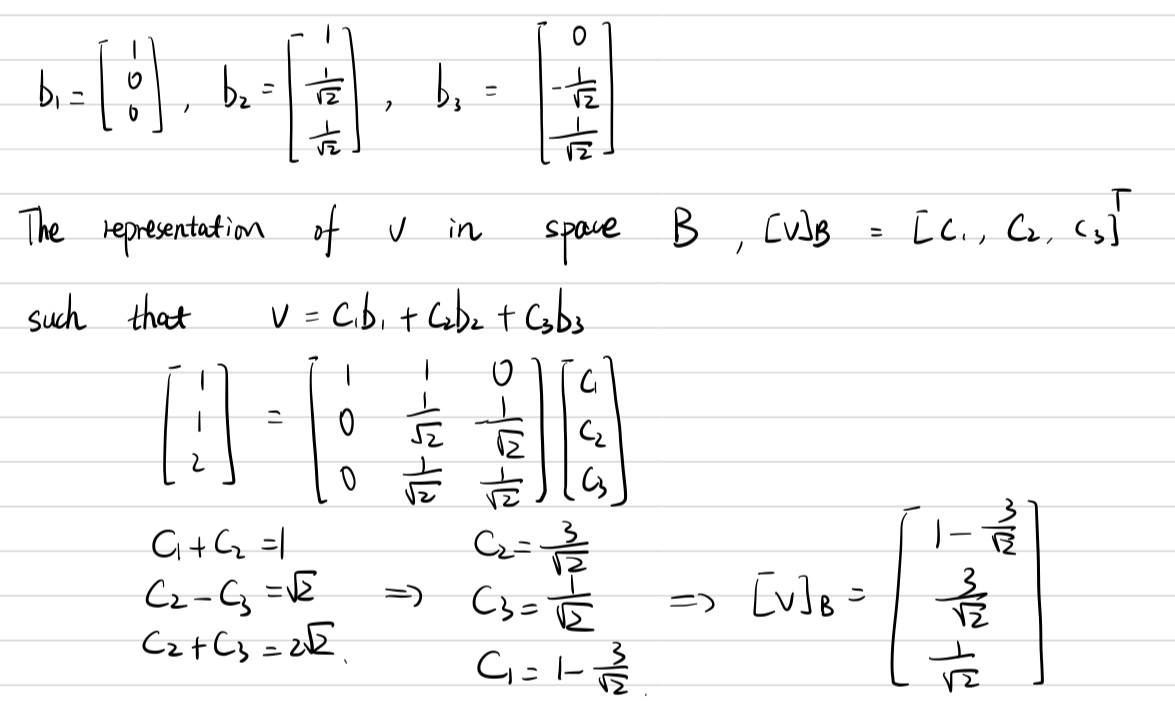 b₁ = [1 0 0], b₂ = [1 1/√2 1/√2], b₃ = [0 -1/√2 1/√2]
The representation of v in space B, [v]B = [c₁, c₂, c₃]ᵀ
such that v = c₁b₁ + c₂b₂ + c₃b₃
[1 1 2] = [1 1 0; 0 1/√2 -1/√2; 0 1/√2 1/√2] [c₁ c₂ c₃]
c₁ + c₂ = 1
c₂ - c₃ = √2
c₂ + c₃ = 2√2.
=> c₂ = 3/√2
c₃ = 1/√2
c₁ = 1 - 3/√2.
=> [v]B = [1 - 3/√2 3/√2 1/√2]